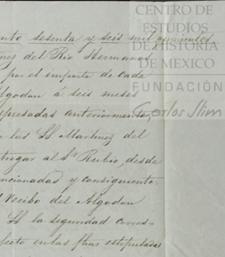 CENTRO DE
ESTUDIOS
DE HISTORIA
DE MEXICO
FUNDACIÓN
Carlos Slim
sesenta y seis mil
del Rio Hermanos
por el importe de cada
Algodon á seis meses
espresadas anteriormente,
los SS Martinez del
al Sr Rubio, desde
mencionadas y consiguiente
recibo del Algodon
SS la seguridad
en las fhas estipuladas